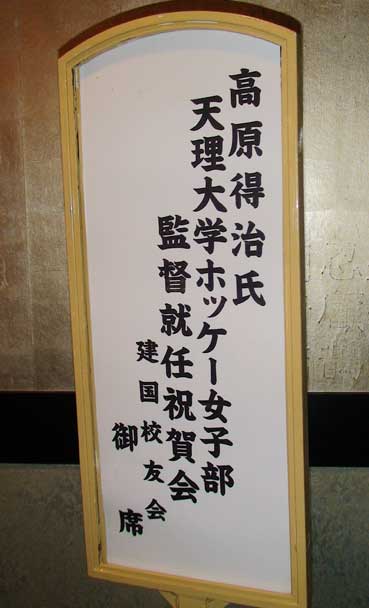 高原得治氏
天理大学ホッケー女子部
監督就任祝賀会
建国校友会
御席